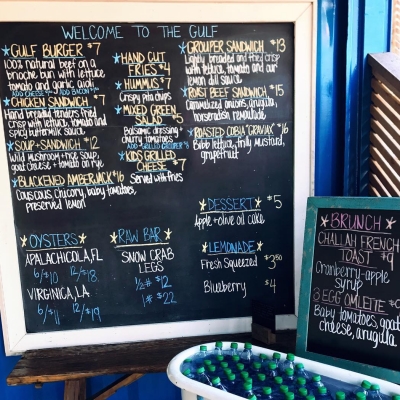 WELCOME TO THE GULF
GULF BURGER $7
100% natural beef on a
brioche bun with lettuce
tomato and garlic aioli
ADD CHEESE $1 ADD BACON
CHICKEN SANDWICH $7
Hand breaded tenders fried
crisp with lettuce, tomato and
spicy buttermilk sauce
SOUP + SANDWICH $12
Wild mushroom + rice soup,
goat cheese + tomato on rye
BLACKENED AMBERJACK $16
Couscous, chicory, baby tomatoes,
preserved lemon
HAND CUT
FRIES $4
HUMMUS $7
Crispy pita chips
MIXED GREEN
SALAD $5
Balsamic dressing +
cherry tomatoes
ADD GRILLED GROUPER
KIDS GRILLED
CHEESE $7
Served with fries
GROUPER SANDWICH $13
Lightly breaded and fried crisp
with lettuce, tomato and our
lemon dill sauce
ROAST BEEF SANDWICH $15
Caramelized onions, arugula,
horseradish remoulade
ROASTED COBIA "GRAVLAX" $16
Bibb lettuce, mustard,
grapefruit
DESSERT $5
Apple + olive oil cake
OYSTERS
APALACHICOLA, FL
6/$10 12/$18
VIRGINICA, LA
6/$11 12/$19
RAW BAR
SNOW CRAB
LEGS
1/2# $12
1# $22
LEMONADE
Fresh Squeezed $3.50
Blueberry $4
BRUNCH
CHALLAH FRENCH
TOAST $9
Cranberry-apple
syrup
3 EGG OMLETTE $9
Baby tomatoes, goat
cheese, arugula